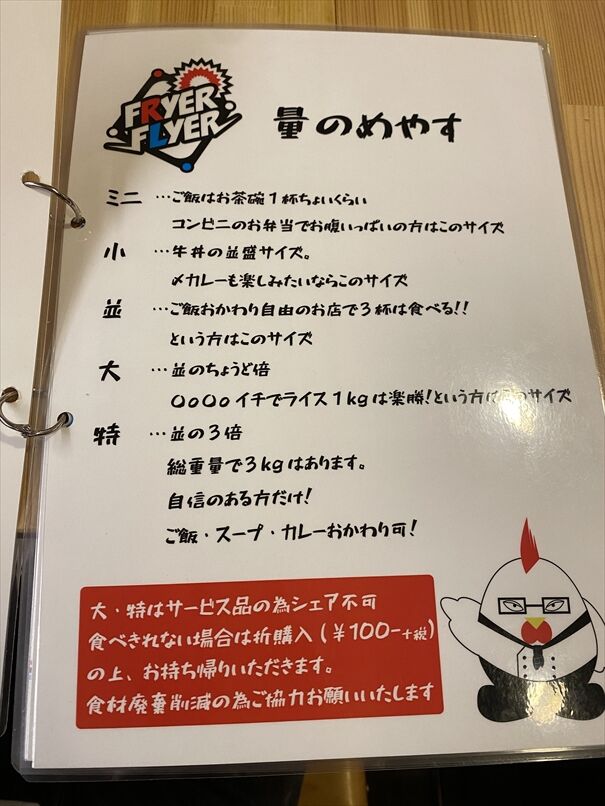 FRYER
FLYER
量のめやす
ミニ …ご飯はお茶碗1杯ちょいくらい
コンビニのお弁当でお腹いっぱいの方はこのサイズ
小 …牛丼の並盛サイズ。
〆カレーも楽しみたいならこのサイズ
並 …ご飯おかわり自由のお店で3杯は食べる!!
という方はこのサイズ
大 …並のちょうど倍
〇o〇oイチでライス1kgは楽勝!という方はこのサイズ
特 …並の3倍
総重量で3kgはあります。
自信のある方だけ!
ご飯・スープ・カレーおかわり可!
大・特はサービス品の為シェア不可
食べきれない場合は折購入(¥100-+税)
の上、お持ち帰りいただきます。
食材廃棄削減の為ご協力お願いいたします